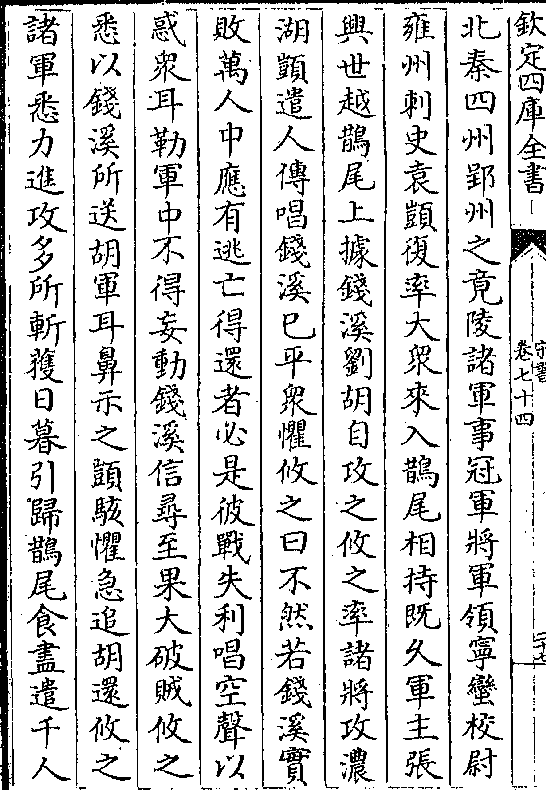 欽定四庫全書
宋書
卷七十四
北秦四州郢州之竟陵諸軍事冠軍將軍領寧蠻校尉
雍州刺史袁顗復率大衆來入鵲尾相持既久軍主張
興世越鵲尾上據錢溪劉胡自攻之攸之率諸將攻濃
湖顗遣人傳唱錢溪已平衆懼攸之曰不然若錢溪實
敗萬人中應有逃亡得還者必是彼戰失利唱空聲以
惑衆耳勒軍中不得妄動錢溪信尋至果大破賊攸之
悉以錢溪所送胡軍耳鼻示之顗駭懼急追胡還攸之
諸軍悉力進攻多所斬獲日暮引歸鵲尾食盡遣千人